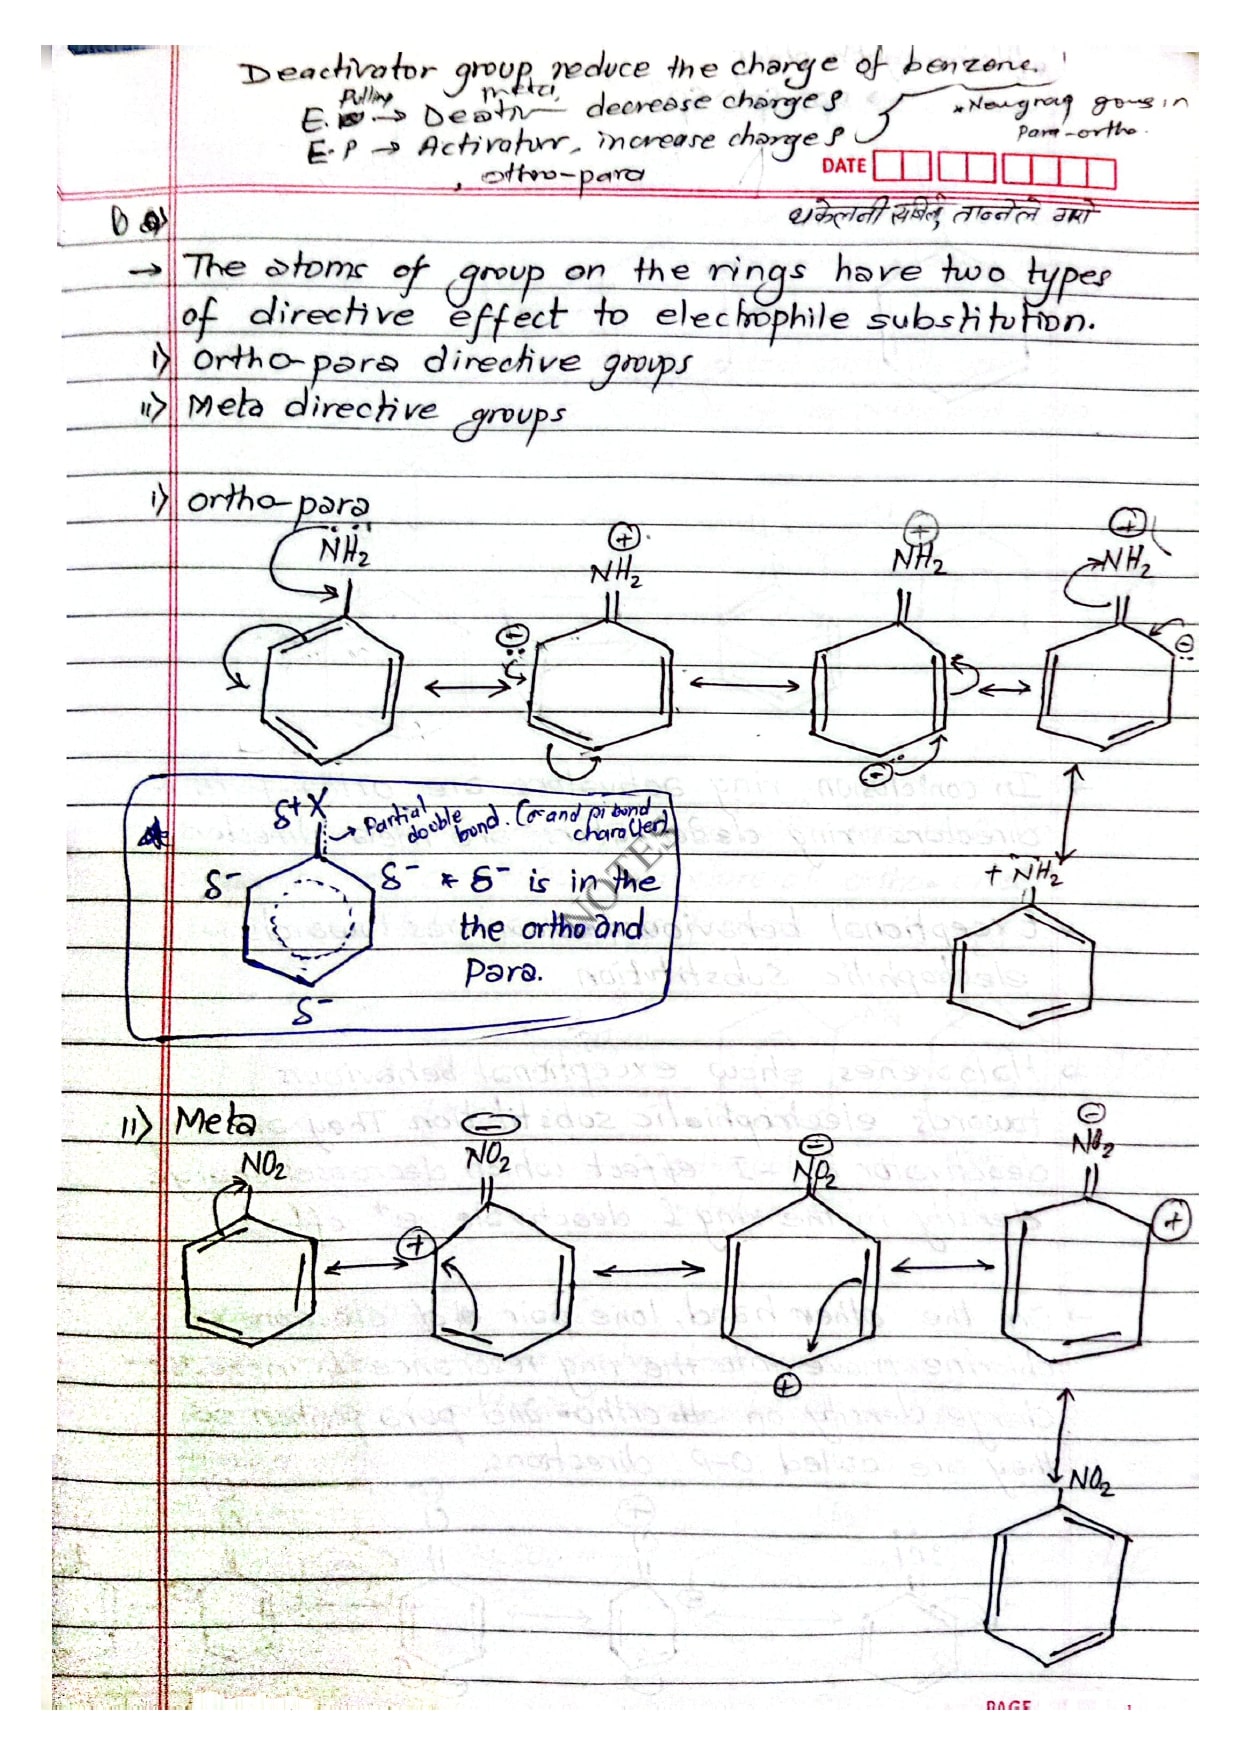 Deactivator group reduce the charge of benzene.
Pulling meta
E. → Deativ decrease charges
E.P → Activatorr, increase charges
, ortho-para
para-ortho.
DATE
→ The atoms of group on the rings have two types
of directive effect to elechophile substitution.
i) Ortho-para directive groups
ii) Meta directive groups
i) ortho-para
NH2
+
NH2
+
NH2
+
NH2
−
−
−
δ+ X
→ Partial double bond. (σ and pi bond character)
δ-
δ- * δ- is in the
the ortho and
Para.
δ-
NOTES
+ NH2
ii) Meta
NO2
−
NO2
−
NO2
−
NO2
+
+
+
NO2
PAGE